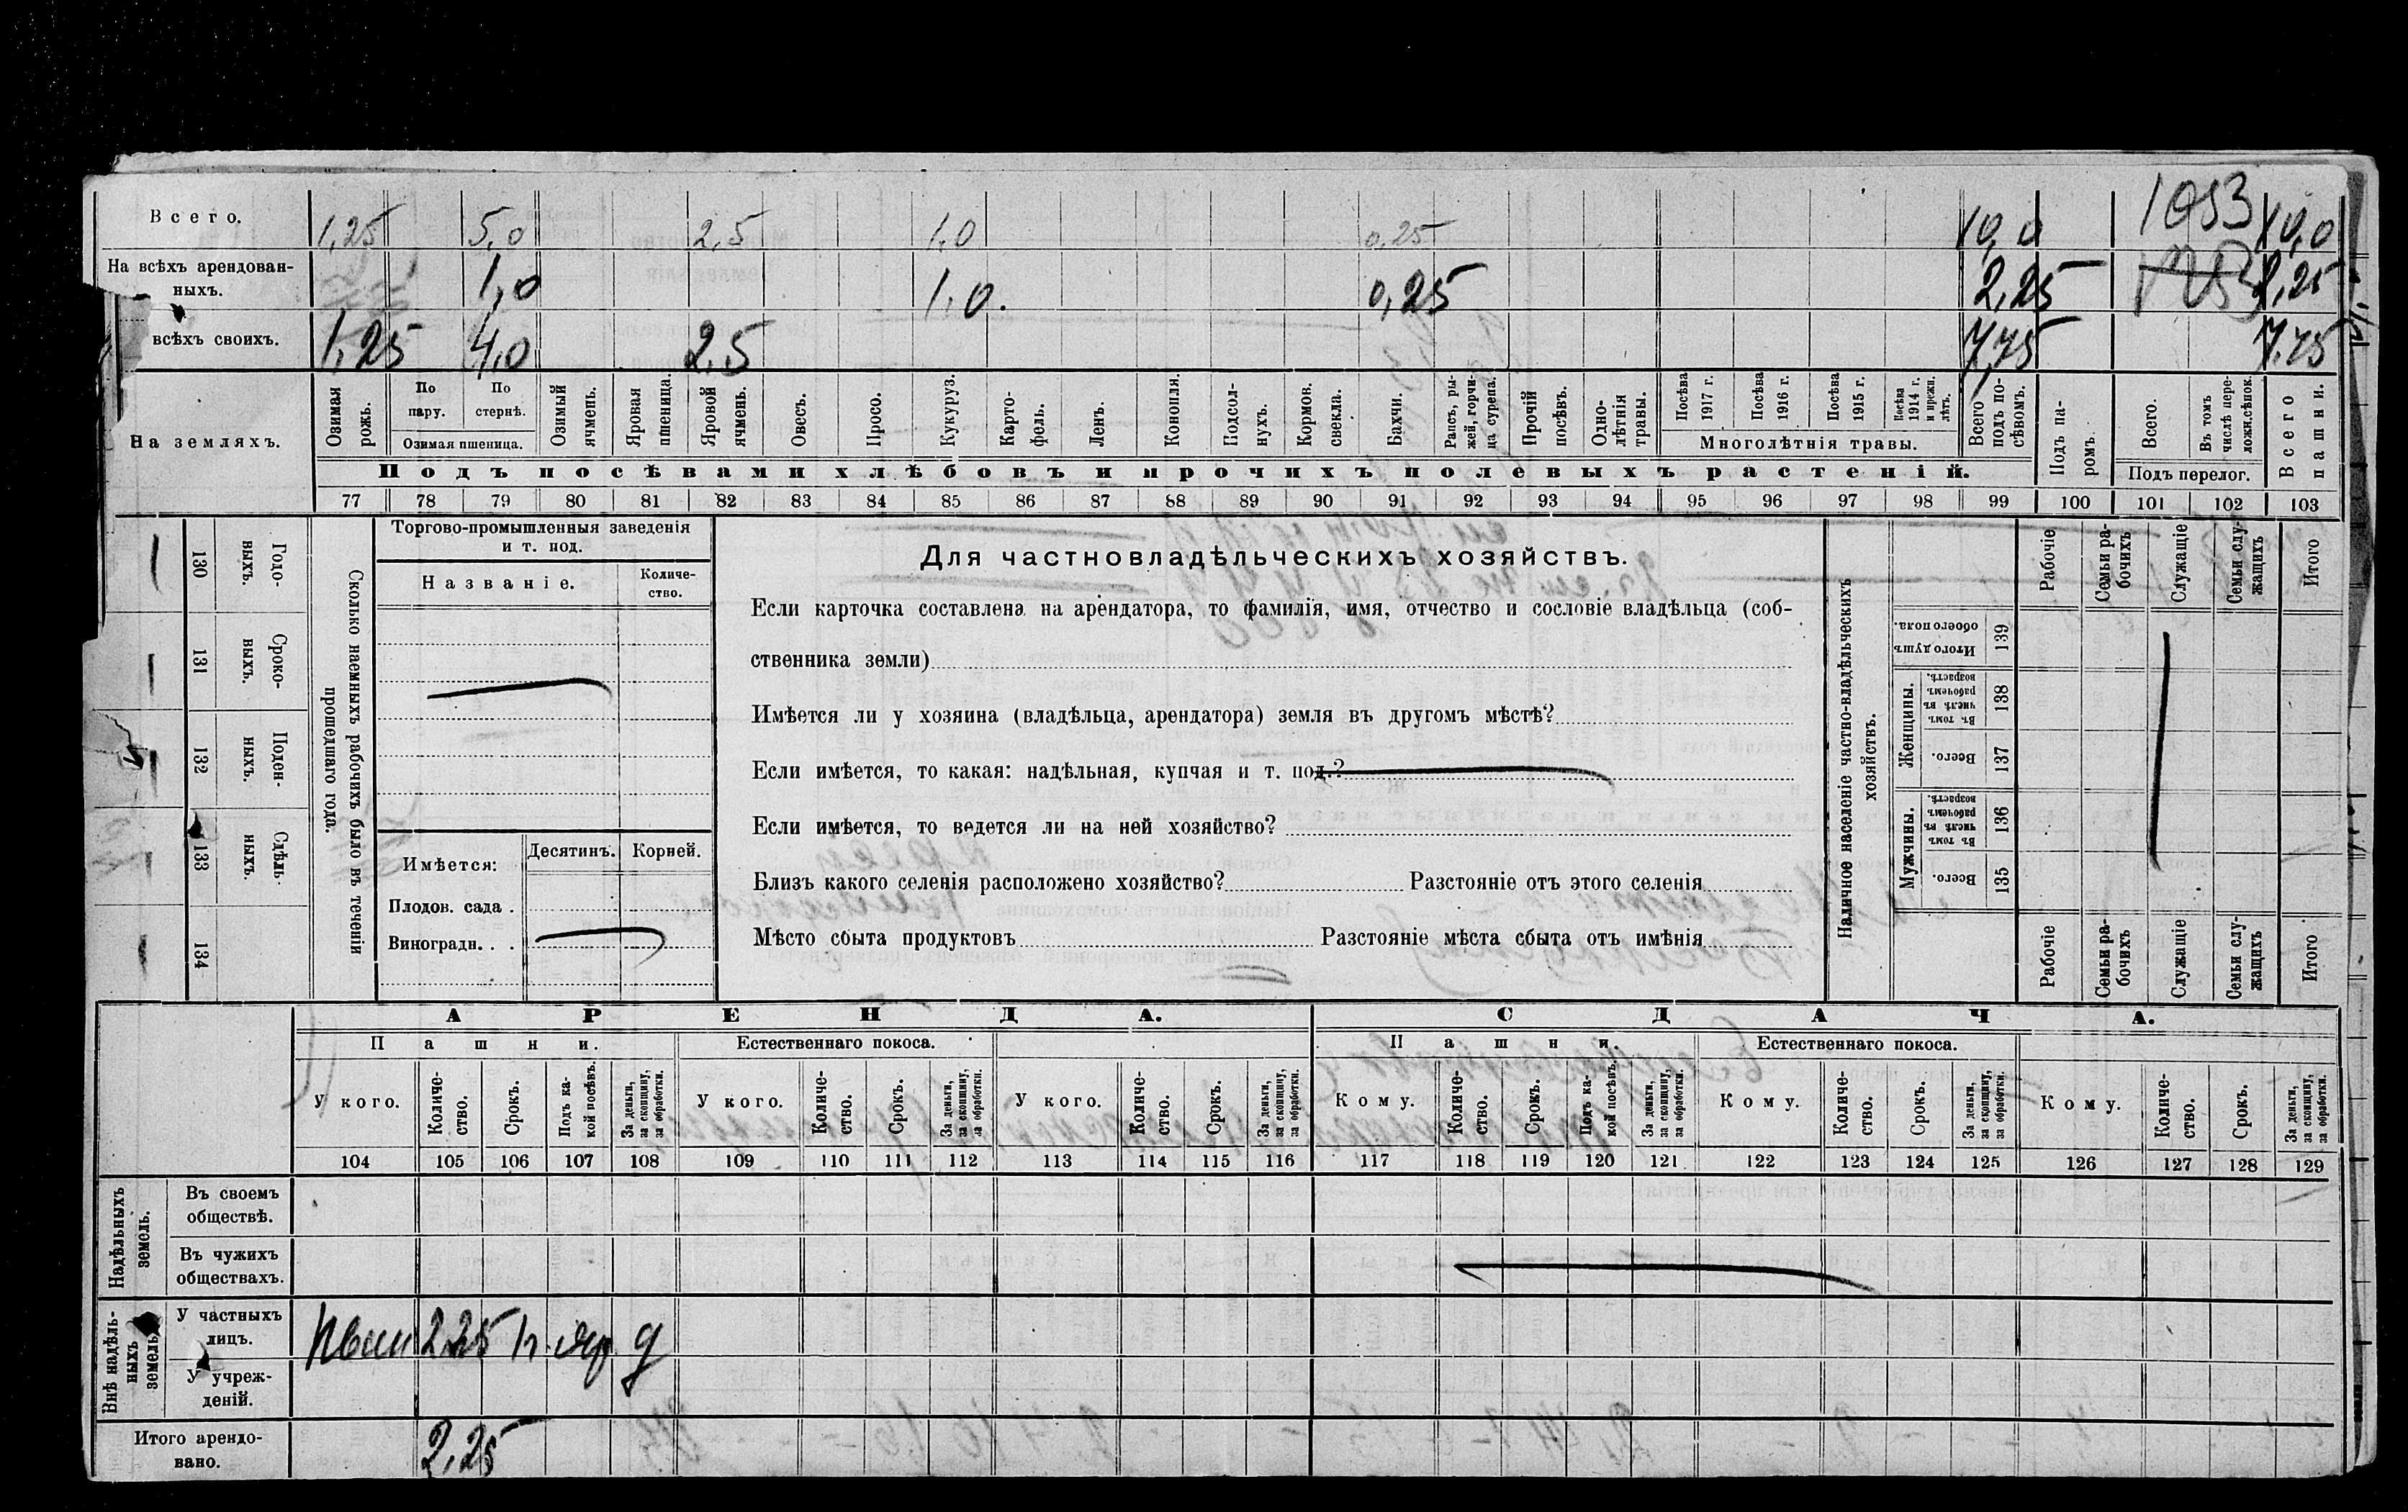 1053
Всего. 1,25 5,0 2,5 1,0 0,25 10,0 10,0
На всѣхъ арендован-
ныхъ. 1,0 1,0. 0,25 2,25 2,25
всѣхъ своихъ. 1,25 4,0 2,5 7,75 7,75
На земляхъ.
Озимая рожь.
По пару.
По стернѣ.
Озимая пшеница.
Озимый ячмень.
Яровая пшеница.
Яровой ячмень.
Овесъ.
Просо.
Кукуруз.
Карто-
фель.
Ленъ.
Конопля.
Подсол-
нухъ.
Кормов. свекла.
Бахчи.
Рапсъ, ры-
жей, горчи-
ца сурепа.
Прочій посѣвъ.
Одно-
лѣтнія травы.
Посѣва 1917 г.
Посѣва 1916 г.
Посѣва 1915 г.
Посѣва 1914 г. и прежн. лѣтъ.
Многолѣтнія травы.
Всего подъ по-
сѣвомъ.
Подъ па-
ромъ.
Всего.
Въ томъ числѣ пере-
ложн.сѣнок.
Подъ перелог.
Всего пашни.
Подъ посѣвами хлѣбовъ и прочихъ полевыхъ растеній.
77 78 79 80 81 82 83 84 85 86 87 88 89 90 91 92 93 94 95 96 97 98 99 100 101 102 103
130 Годо-
выхъ.
131 Сроко-
выхъ.
132 Поден-
ныхъ.
133 Сдѣль-
ныхъ.
134
Сколько наемныхъ рабочихъ было въ теченіи
прошедшаго года.
Торгово-промышленныя заведенія
и т. под.
Названіе.
Количе-
ство.
Имѣется: Десятинъ. Корней.
Плодов. сада .
Виноградн. . .
Для частновладѣльческихъ хозяйствъ.
Если карточка составлена на арендатора, то фамилія, имя, отчество и сословіе владѣльца (соб-
ственника земли)
Имѣется ли у хозяина (владѣльца, арендатора) земля въ другомъ мѣстѣ?
Если имѣется, то какая: надѣльная, купчая и т. под.?
Если имѣется, то ведется ли на ней хозяйство?
Близъ какого селенія расположено хозяйство? Разстояніе отъ этого селенія
Мѣсто сбыта продуктовъ Разстояніе мѣста сбыта отъ имѣнія
Наличное населеніе частно-владѣльческихъ
хозяйствъ.
Рабочіе
Семьи ра-
бочихъ
Служащіе
Семьи слу-
жащихъ
Итого
Итого душъ обоего пола. 139
Женщины.
Въ томъ числѣ въ рабочемъ возрастѣ. 138
Всего. 137
Мужчины.
Въ томъ числѣ въ рабочемъ возрастѣ. 136
Всего. 135
Рабочіе
Семьи ра-
бочихъ
Служащіе
Семьи слу-
жащихъ
Итого
АРЕНДА. СДАЧА.
Пашни. Естественнаго покоса. Пашни. Естественнаго покоса.
У кого.
Количе-
ство.
Срокъ.
Подъ ка-
кой посѣвъ.
За деньги, за скопщину, за обработки.
У кого.
Количе-
ство.
Срокъ.
За деньги, за скопщину, за обработки.
У кого.
Количе-
ство.
Срокъ.
За деньги, за скопщину, за обработки.
Кому.
Количе-
ство.
Срокъ.
Подъ ка-
кой посѣвъ.
За деньги, за скопщину, за обработки.
Кому.
Количе-
ство.
Срокъ.
За деньги, за скопщину, за обработки.
Кому.
Количе-
ство.
Срокъ.
За деньги, за скопщину, за обработки.
104 105 106 107 108 109 110 111 112 113 114 115 116 117 118 119 120 121 122 123 124 125 126 127 128 129
Надѣльныхъ земель.
Въ своемъ
обществѣ.
Въ чужихъ
обществахъ.
Внѣ надѣль-
ныхъ земель.
У частныхъ
лицъ. 2.25
У учреж-
деній.
Итого арендо-
вано. 2,25